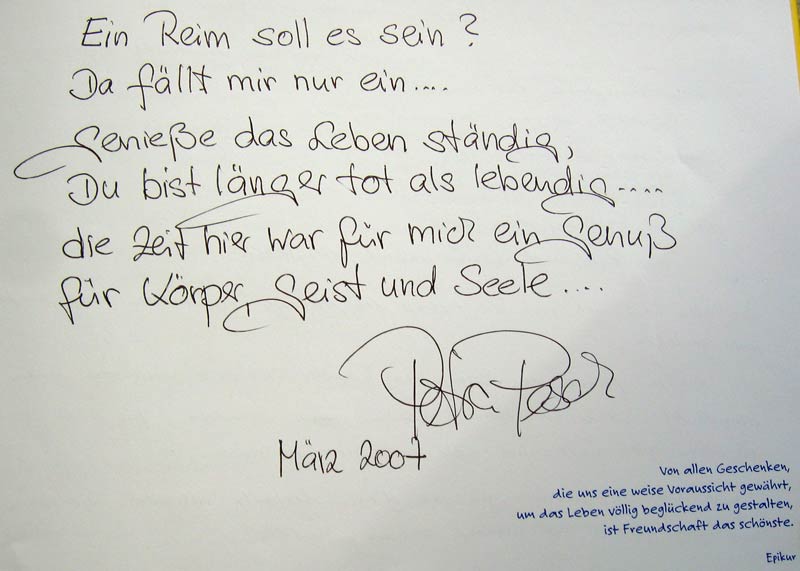 Ein Reim soll es sein?
Da fällt mir nur ein....
Genieße das Leben ständig,
Du bist länger tot als lebendig....
die Zeit hier war für mich ein Genuß
für Körper, Geist und Seele....
Petra
März 2007
Von allen Geschenken,
die uns eine weise Voraussicht gewährt,
um das Leben völlig beglückend zu gestalten,
ist Freundschaft das schönste.
Epikur